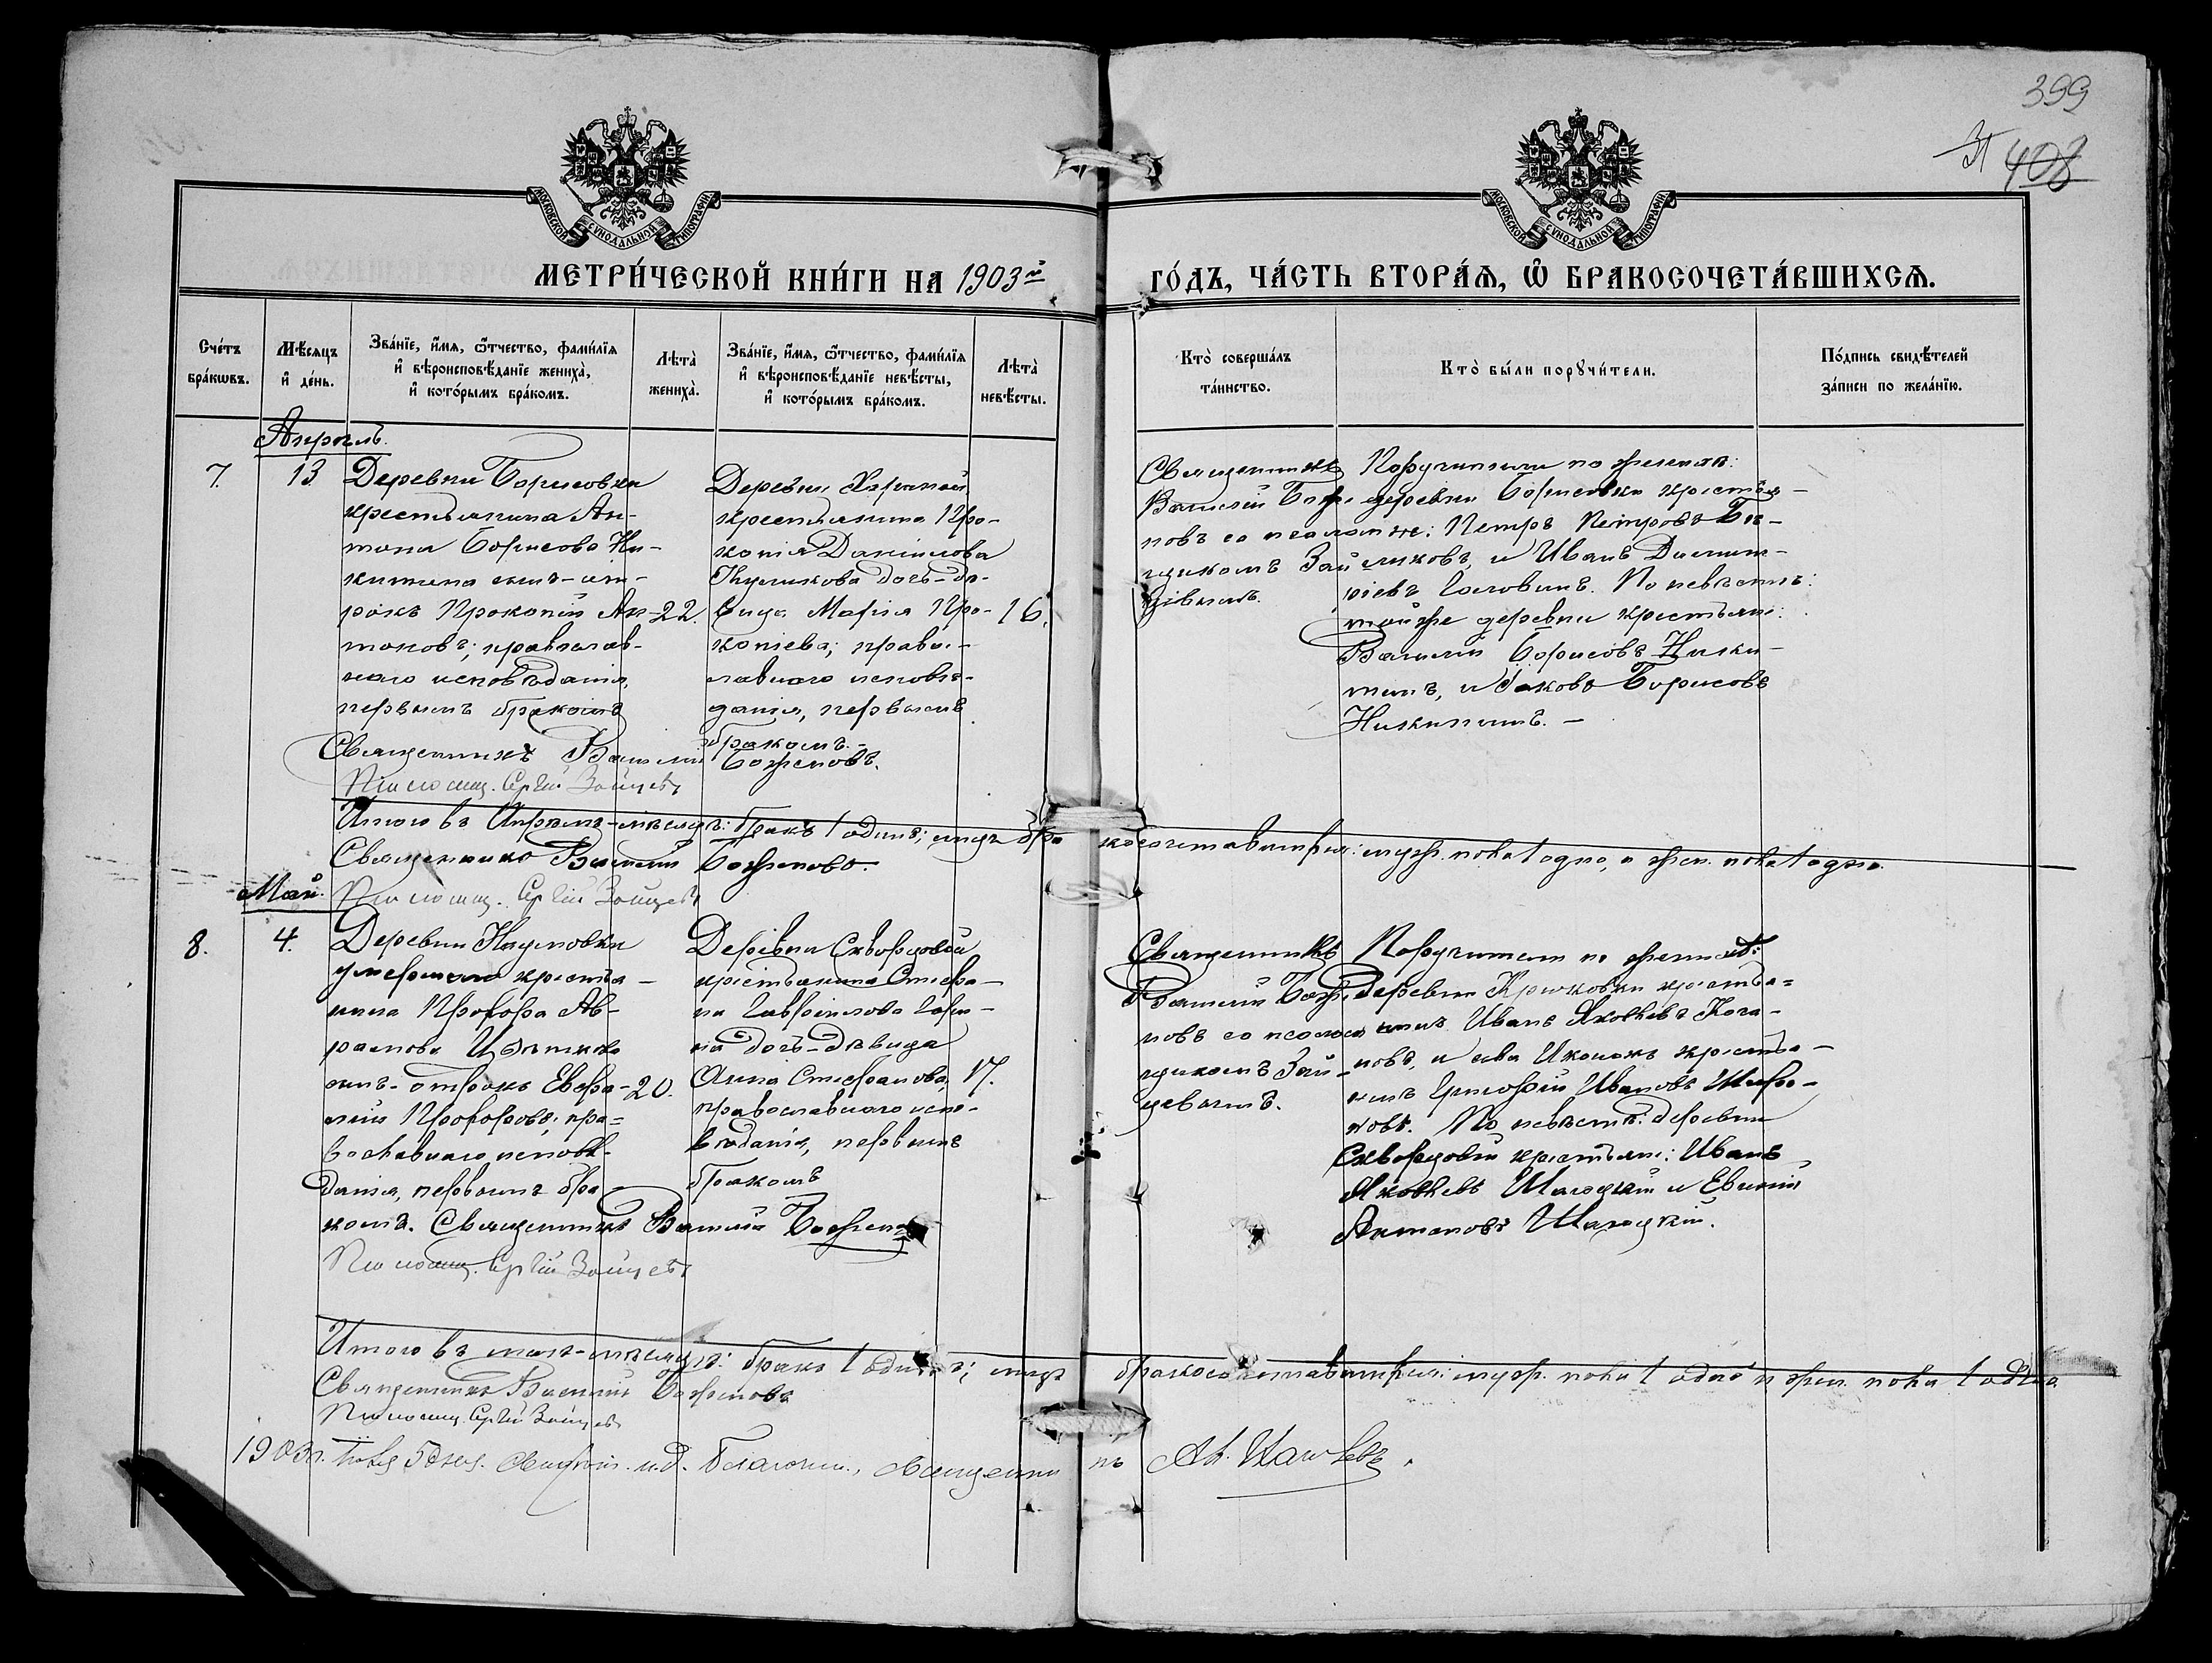 399
408
МОСКОВСКОЙ СѴНОДАЛЬНОЙ ТИПОГРАФІИ
МОСКОВСКОЙ СѴНОДАЛЬНОЙ ТИПОГРАФІИ
МЕТРИ́ЧЕСКОЙ КНИ́ГИ НА 1903й
ГО́ДЪ, ЧА́СТЬ ВТОРА́Ѧ, Ѡ҆ БРАКОСОЧЕТА́ВШИХСѦ.
Сче́тъ
бра́кѡвъ.
Мѣ́сѧцъ
и҆ де́нь.
Зва́нїе, и҆́мѧ, ѻ҆́тчество, фами́лїѧ
и҆ вѣроисповѣ́данїе жениха̀,
и҆ кото́рымъ бра́комъ.
Лѣта̀
жениха̀.
Зва́нїе, и҆́мѧ, ѻ҆́тчество, фами́лїѧ
и҆ вѣроисповѣ́данїе невѣ́сты,
и҆ кото́рымъ бра́комъ.
Лѣта̀
невѣ́сты.
Кто̀ соверша́лъ
та́инство.
Кто̀ бы́ли порꙋчи́тели.
По́дпись свидѣ́телей
за́писи по жела́нїю.
Апрѣль.
7.
13
Деревни Борисовки
крестьянина Ан-
тона Борисова Ни-
китина сынъ-от-
рокъ Прокопій Ан-
тоновъ; православ-
наго исповѣданія,
первымъ бракомъ
22.
Деревни
крестьянина Про-
копія Даніилова
Куликова дочь-дѣ-
вица Марія Про-
копіева; правос-
лавнаго исповѣ-
данія, первымъ
бракомъ.-
16.
Священникъ
Василій Баже-
новъ со псалом-
щикомъ Зай-
цевымъ.
Поручители по женихѣ:
деревни Борисовки крестья-
не: Петръ Петровъ
и Иванъ Димит-
ріевъ Головинъ. По невѣстѣ:
той же деревни крестьяне:
Василій Борисовъ Ники-
тинъ, и Яковъ Борисовъ
Никитинъ. -
Священникъ Василій Баженовъ.
Псаломщ. Сергій Зайцевъ
Итого въ Апрѣлѣ-мѣсяцѣ: бракъ 1 одинъ; лицъ бра
косочетавшихся: муж. пола 1 одно, а жен. пола 1 одно.
Священникъ Василій Баженовъ.
Псаломщ. Сергій Зайцевъ
Май.
8.
4.
Деревни Наумовки
умершаго крестья-
нина Прохора Ав-
рамова
сынъ-отрокъ Евфи-
мій Прохоровъ; пра=
вославнаго исповѣ-
данія, первымъ бра-
комъ.
20.
Деревни Скворцовой
крестьянина Стефа-
на Гавріилова Гори-
на дочь-дѣвица
Анна Стефанова,
православнаго испо-
вѣданія, первымъ
бракомъ
17.
Священникъ
Василій Баже-
новъ со псалом-
щикомъ Зай-
цевымъ.
Поручители по женихѣ:
деревни Крюковки крестья=
нинъ Иванъ Яковлевъ
новъ, и села крестья-
нинъ Григорій Ивановъ
новъ. По невѣстѣ: деревни
Скворцовой крестьяне: Иванъ
Яковлевъ Шагоцкій и
Антоновъ Шагоцкій.
Священникъ Василій Баженовъ
Псаломщ. Сергій Зайцевъ
Итого въ маѣ-мѣсяцѣ: бракъ 1 одинъ; лицъ
бракосочетавшихся: муж. пола 1 одно и жен. пола 1 одно.
Священникъ Василій Баженовъ
Псаломщ. Сергій Зайцевъ
1903 г. 5 дня. и.д. благочин., священни
къ